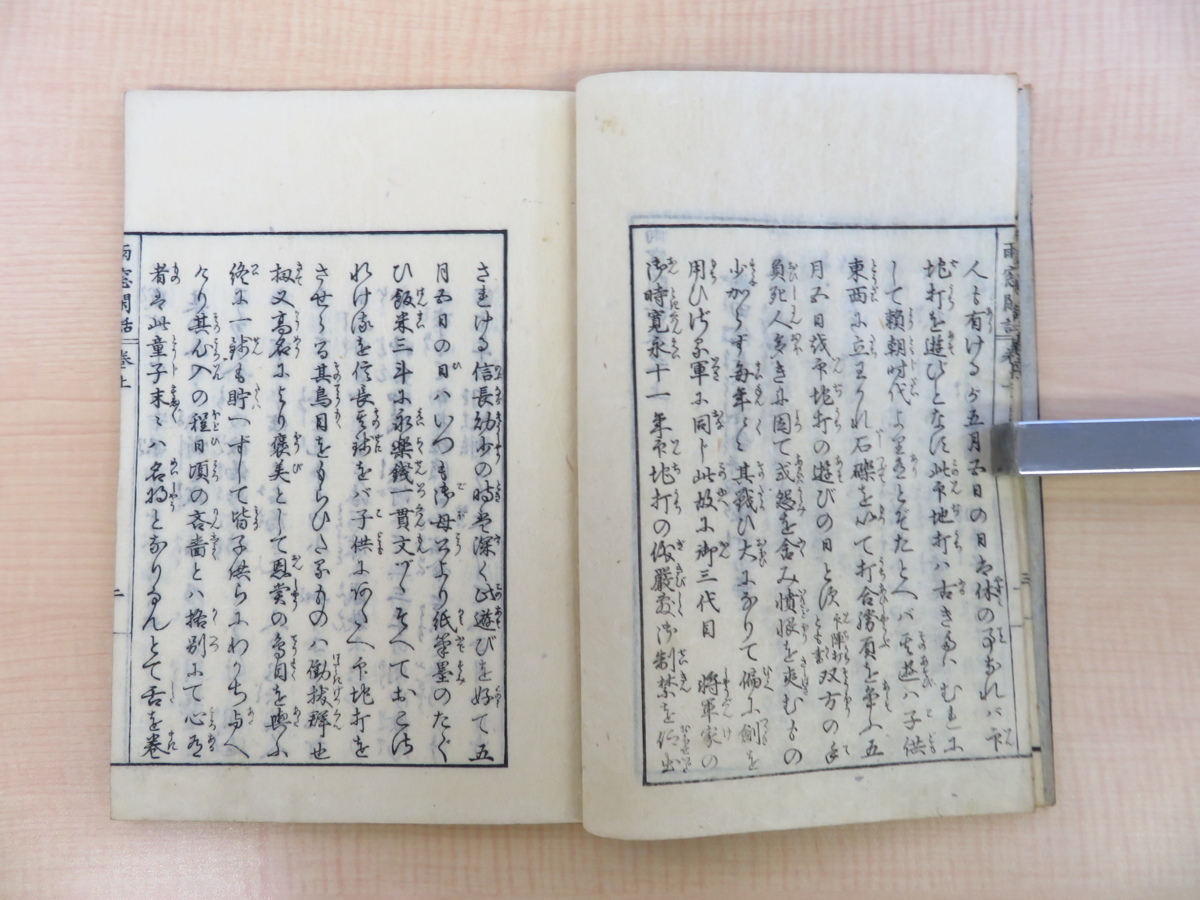 人も有けるが五月五日の日は休の事なれバ下
地打を遊びとなす此下地打ハ古き事にむかし
して頼朝時代より有とぞたとへバ其遊ハ子供
東西に立わかれ石礫を以て打合勝負を争ふ五
月五日印地打の遊びの日と須双方の手
負死人多きに因て或怨を含み憤恨を爽むもの
少からず毎年〻其戦ひ大になりて偏に剣を
用ひ軍に同じ此故に御三代目　将軍家の
御時寛永十一年印地打の儀厳敷御制禁を仰出
雨窓閑話
卷上
三
されける信長幼少の時は深く此遊びを好て五
月五日の日ハいつも御母公より紙筆墨のたぐ
ひ飯米三斗に永楽銭一貫文づゝそへておこせ
れけるを信長其銭をバ子供にあたへ下地打を
させらる其鳥目をもらひたるものハ働抜群也
扨又高名により褒美として恩賞の鳥目を與ふ
終に一銭も貯へずして皆子供らにわかち与へ
けり其心入の程日頃の吝嗇とハ格別にて心有
者は此童子末〻ハ名将となりなんとて舌を巻
雨窓閑話
卷上